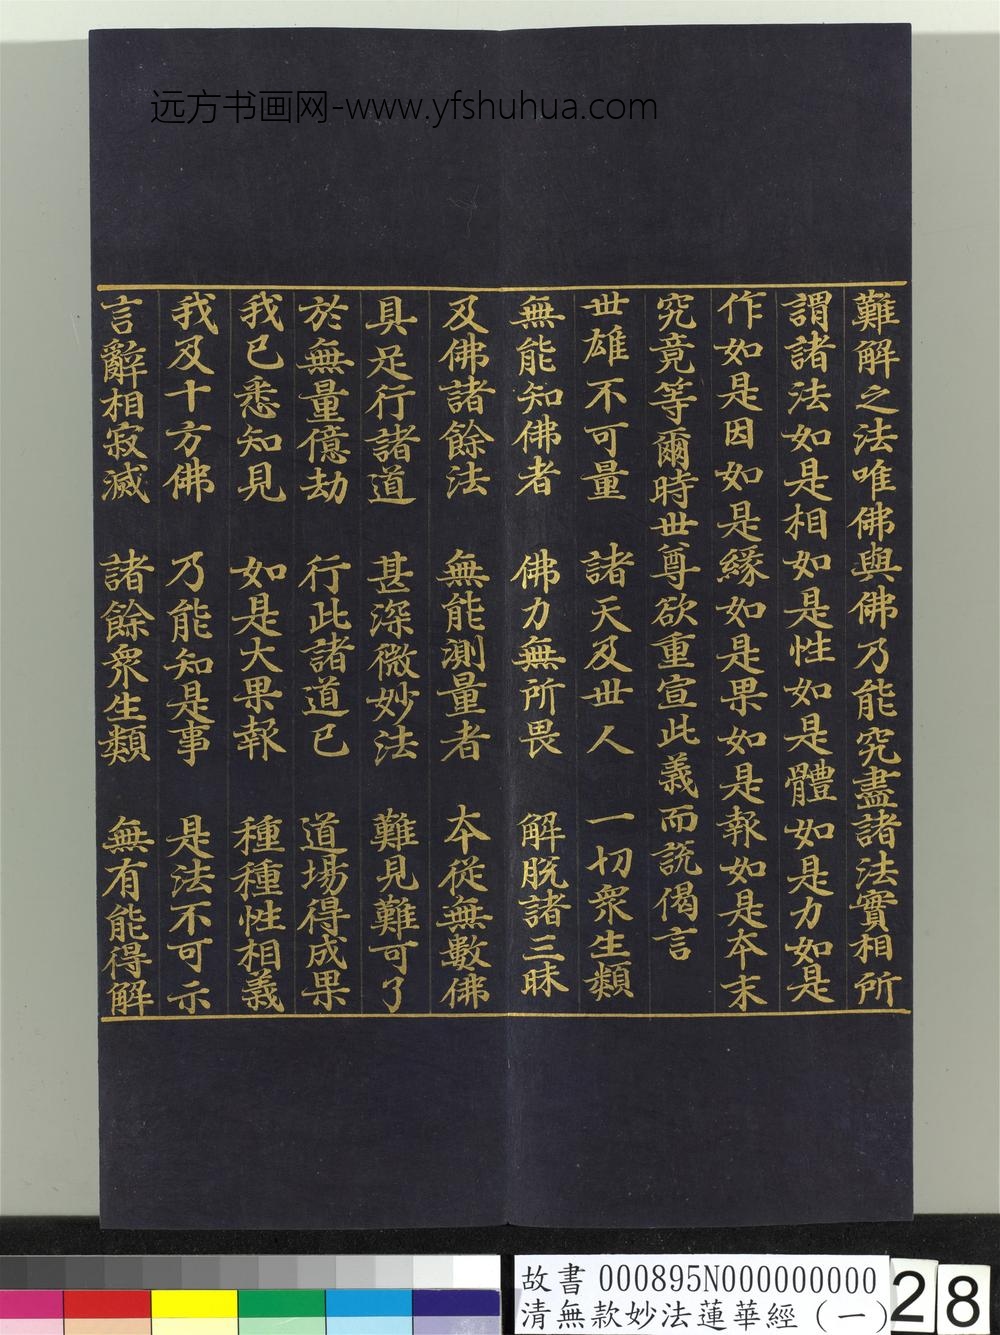 远方书画网-www.yfshuhua.com
難解之法唯佛與佛乃能究盡諸法實相所
謂諸法如是相如是性如是體如是力如是
作如是因如是緣如是果如是報如是本末
究竟等爾時世尊欲重宣此義而說偈言
世雄不可量　諸天及世人　一切眾生類
無能知佛者　佛力無所畏　解脫諸三昧
及佛諸餘法　無能測量者　本從無數佛
具足行諸道　甚深微妙法　難見難可了
於無量億劫　行此諸道已　道場得成果
我已悉知見　如是大果報　種種性相義
我及十方佛　乃能知是事　是法不可示
言辭相寂滅　諸餘眾生類　無有能得解
故書 000895N000000000
清無款妙法蓮華經（一）
28